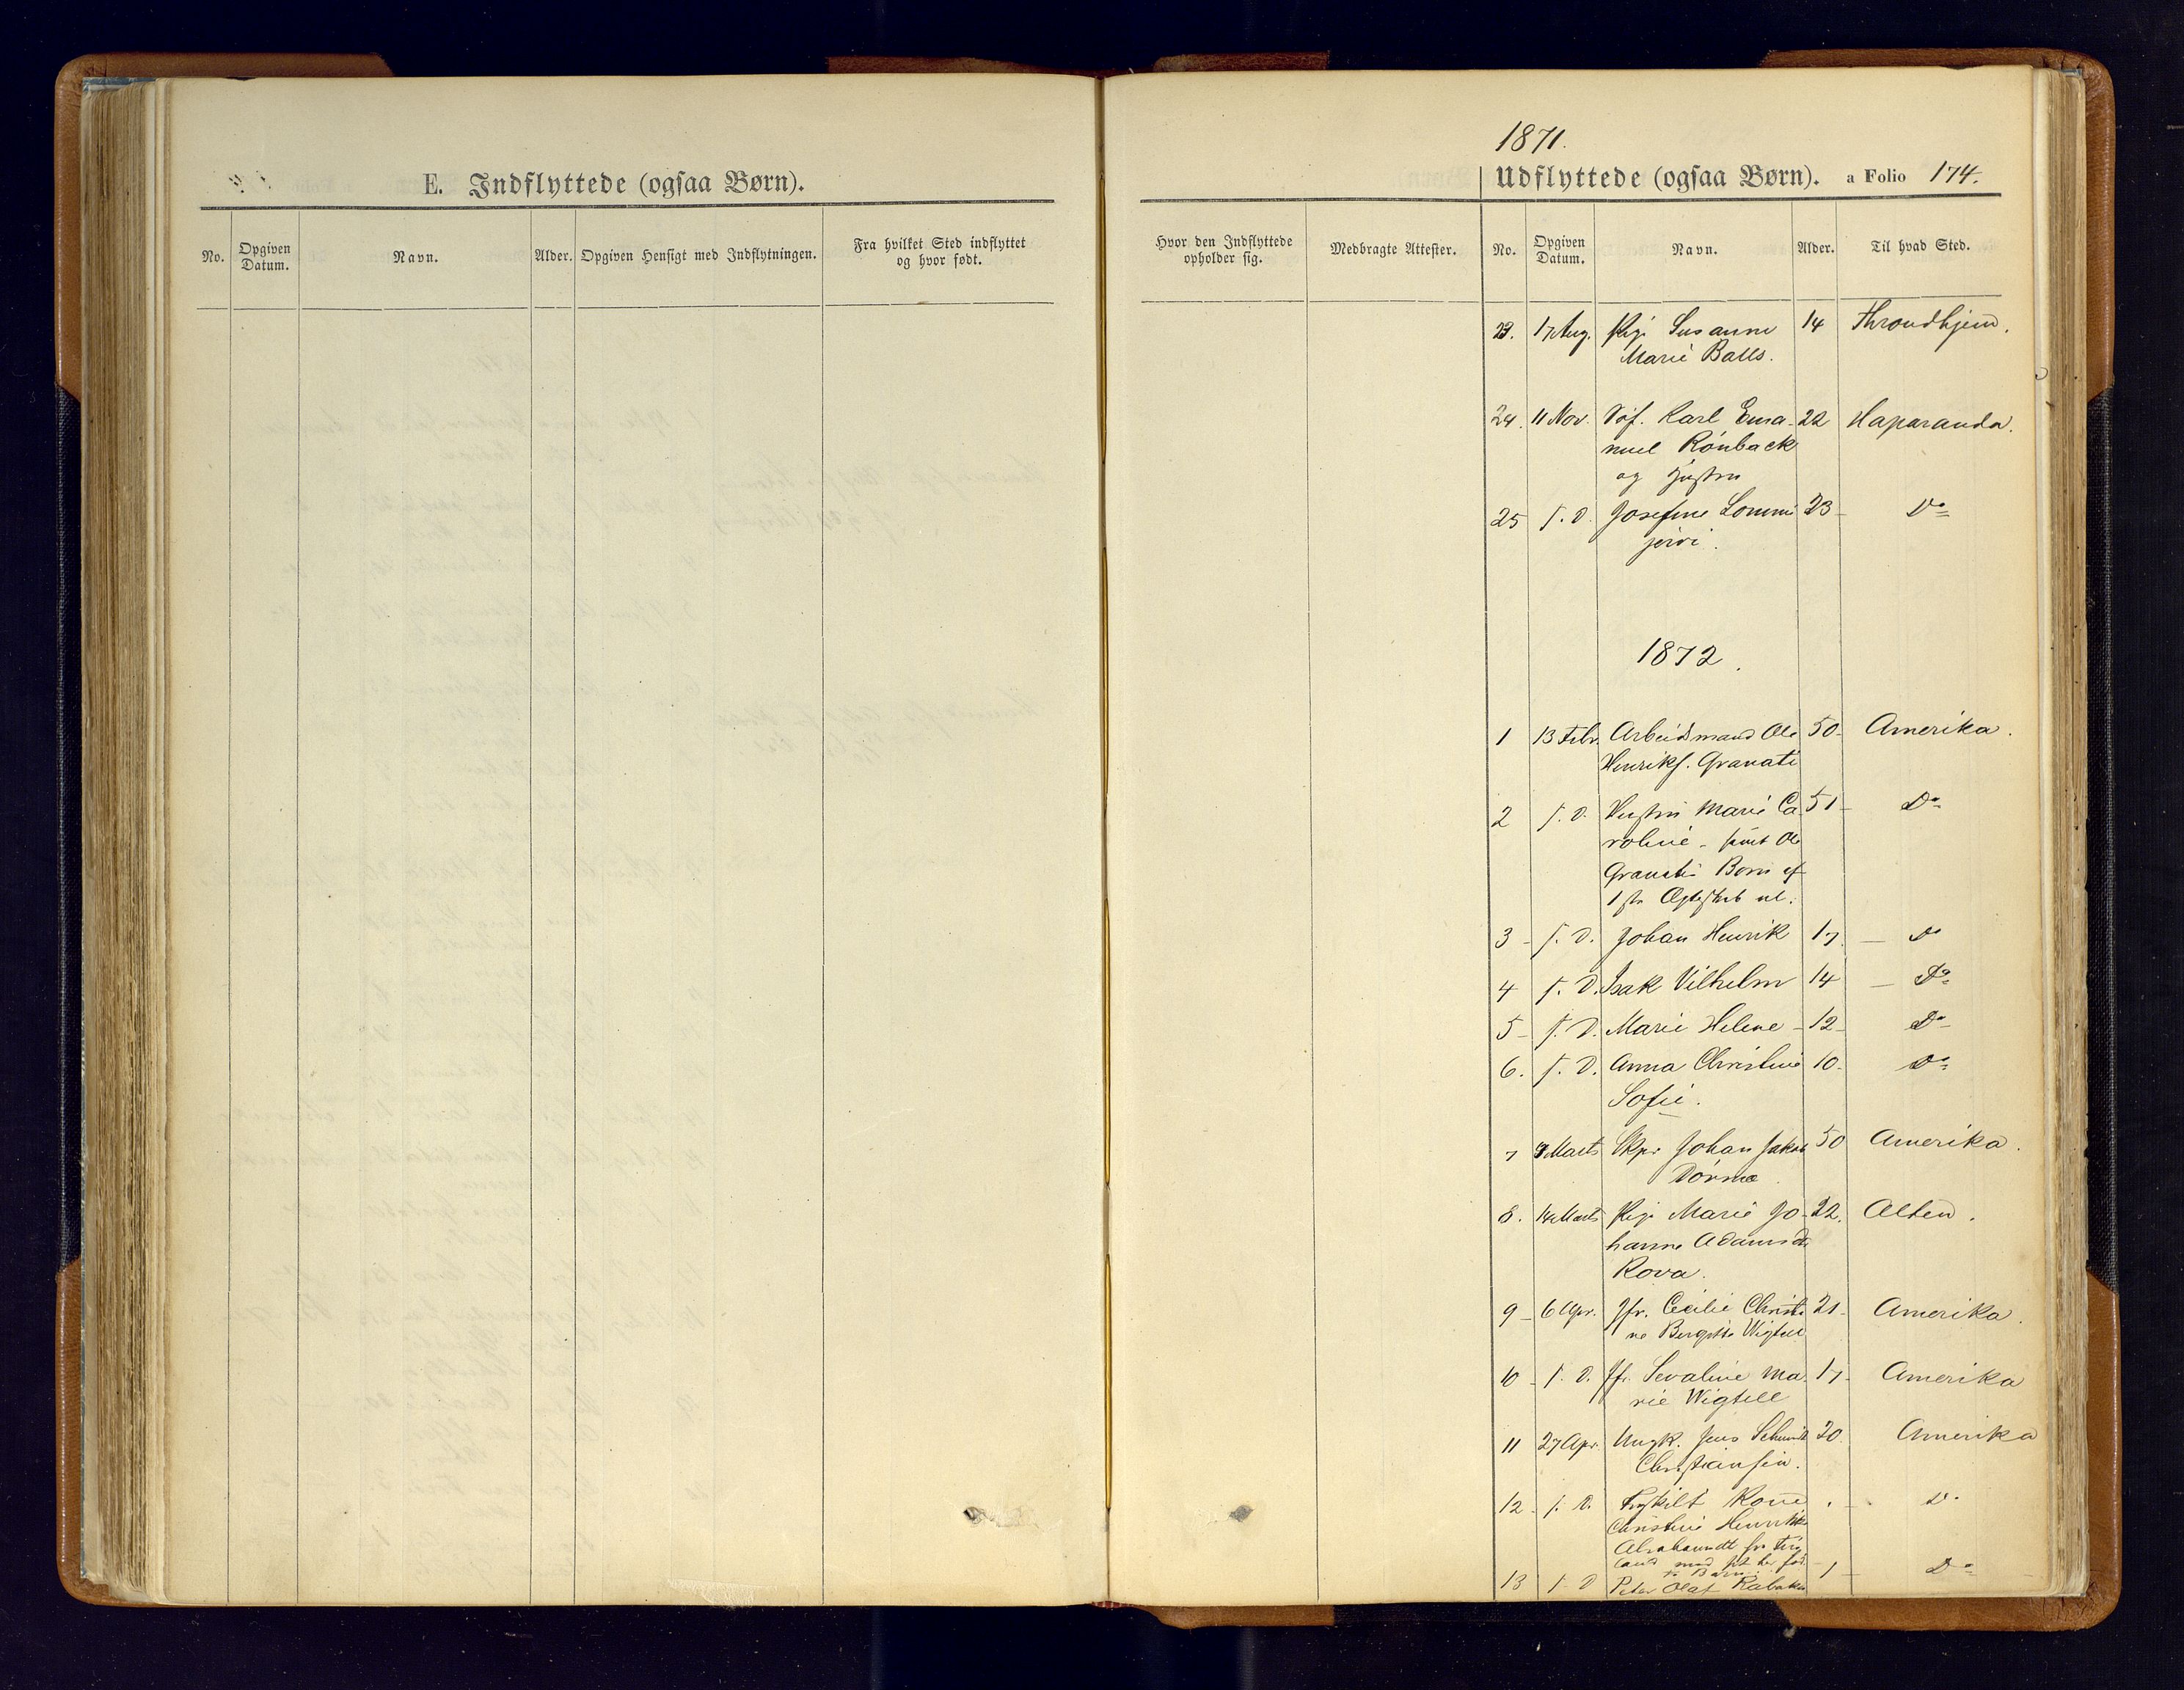 E. Indflyttede (ogsaa Børn).
No.
Opgiven Datum.
Navn.
Alder.
Opgiven Hensigt med Indflytningen.
Fra hvilket Sted indflyttet
og hvor født.
1871.
Udflyttede (ogsaa Børn). a Folio 174.
Hvor den Indflyttede
opholder sig.
Medbragte Attester.
No.
Opgiven Datum.
Navn.
Alder.
Til hvad Sted.
23. 17 Aug. Pige Susanne 14 Throndhjem.
Marie Balls.
24. 11 Nov. Karl Ema- 22 Haparanda.
nuel Rönback
og Hustru
25 s. D. Josefine Lommi 23 Do
jervi.
1872.
1 13 Febr. Arbeidsmand Ole 50 Amerika.
Henriks. Granati
2 s. D. Hustru Marie Ca- 51 Do
roline - samt Ole
Granatis Børn af
1ste Ægteskab nl.
3 s. D. Johan Henrik 17 Do
4 s. D. Isak Vilhelm 14 Do
5 s. D. Marie Helene 12 Do
6. s. D. Anna Christine 10. Do
Sofie.
7 Marts Johan Jakob 50 Amerika.
8. 14 Marts Pige Marie Jo- 22. Alten.
hanne Adamsdr
Rova.
9 6 Apr. Jfr. Cecilie Christi- 21 Amerika.
ne Bergitte Wigtell
10 s. D. Jfr. Sevaline Ma- 17 Amerika
rie Wigtell
11 27 Apr. Ungk. Jens Schmidt 20. Amerika
Christiansen.
12 s. D. Fraskilt Kone Do
Christine Henriks
fra
land med
13 s. D. Peter Olaf 1 Do